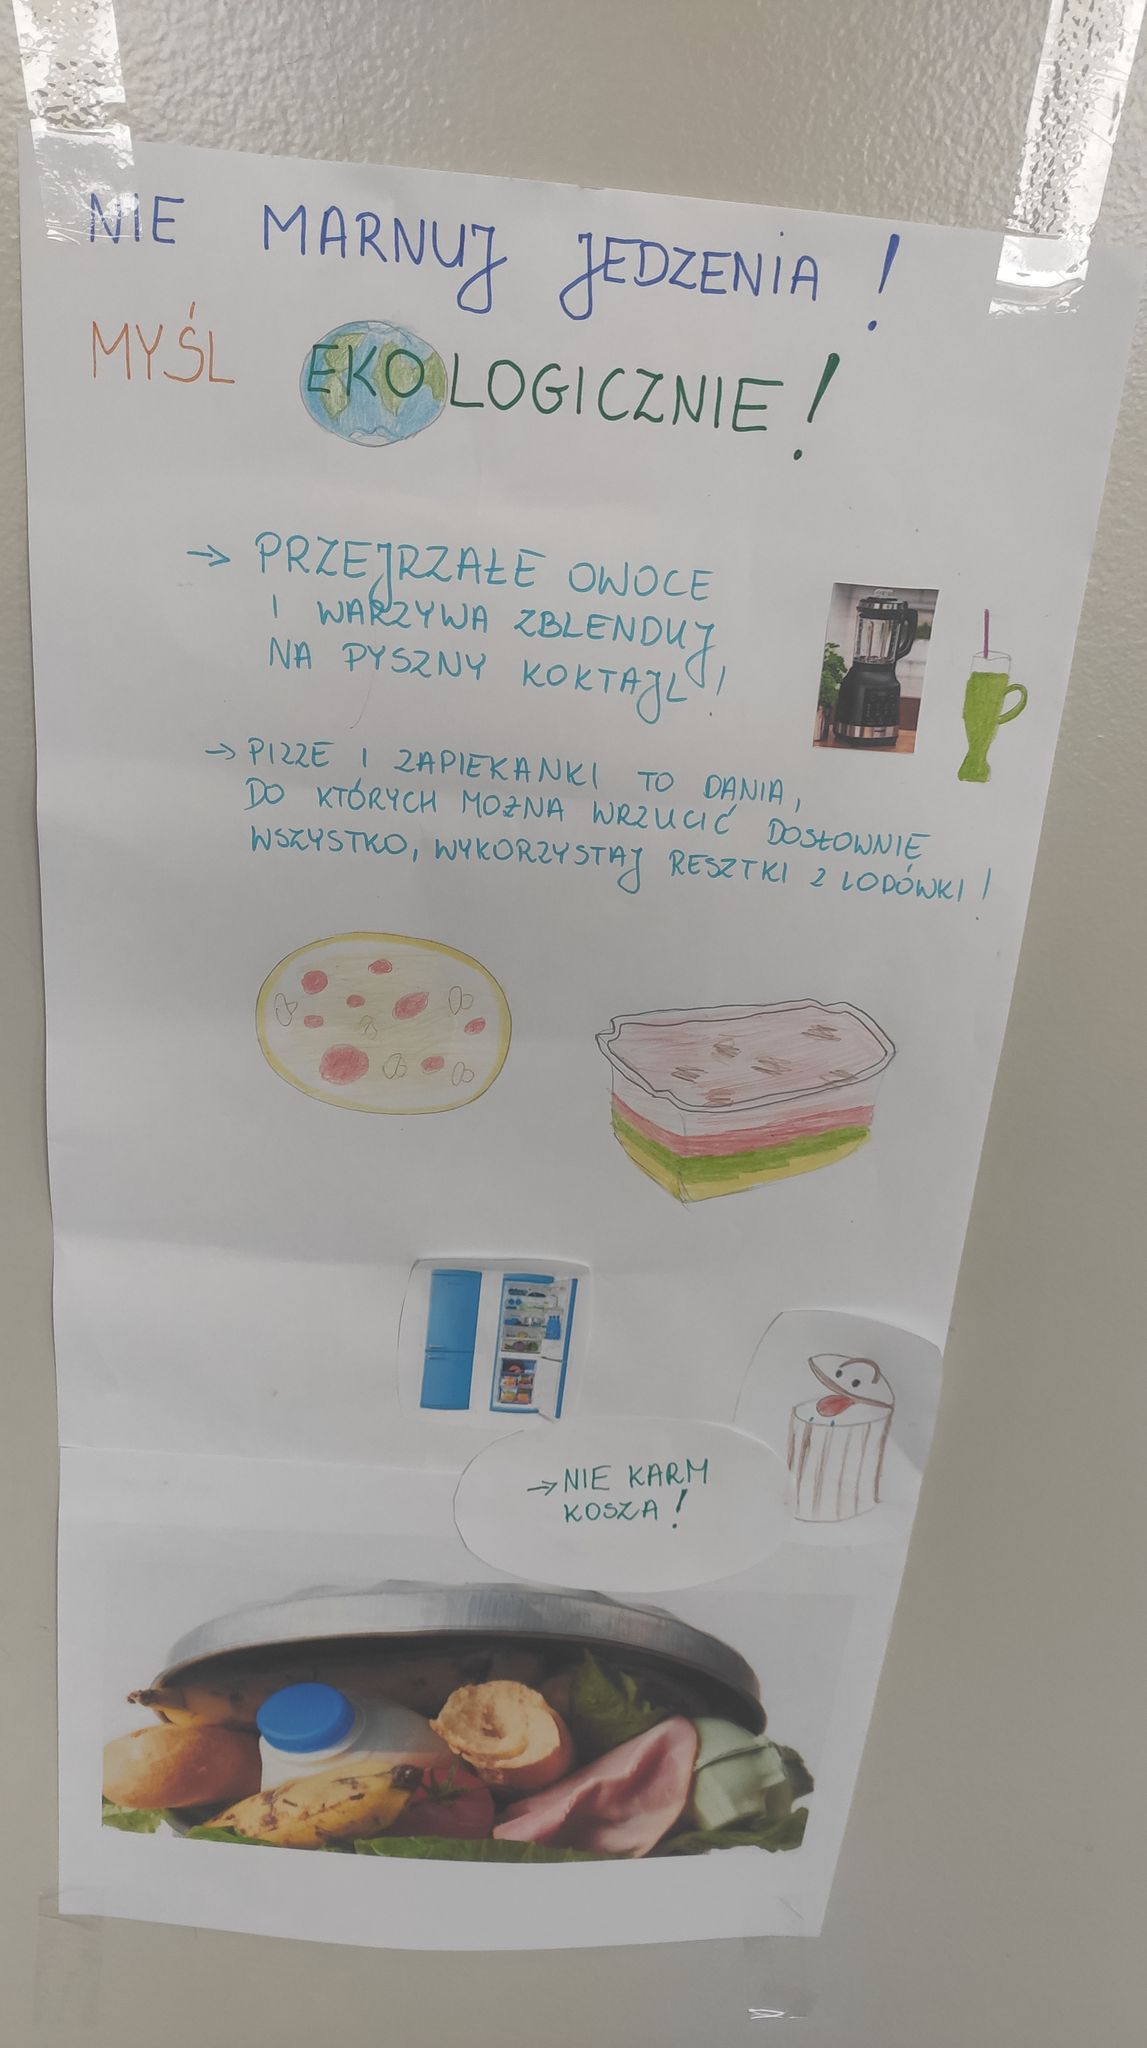 NIE MARNUJ JEDZENIA!
MYŚL EKOLOGICZNIE!
→ PRZEJRZAŁE OWOCE
I WARZYWA ZBLENDUJ
NA PYSZNY KOKTAJL!
→ PIZZE I ZAPIEKANKI TO DANIA,
DO KTÓRYCH MOŻNA WRZUCIĆ DOSŁOWNIE
WSZYSTKO, WYKORZYSTAJ RESZTKI Z LODÓWKI!
→ NIE KARM
KOSZA!